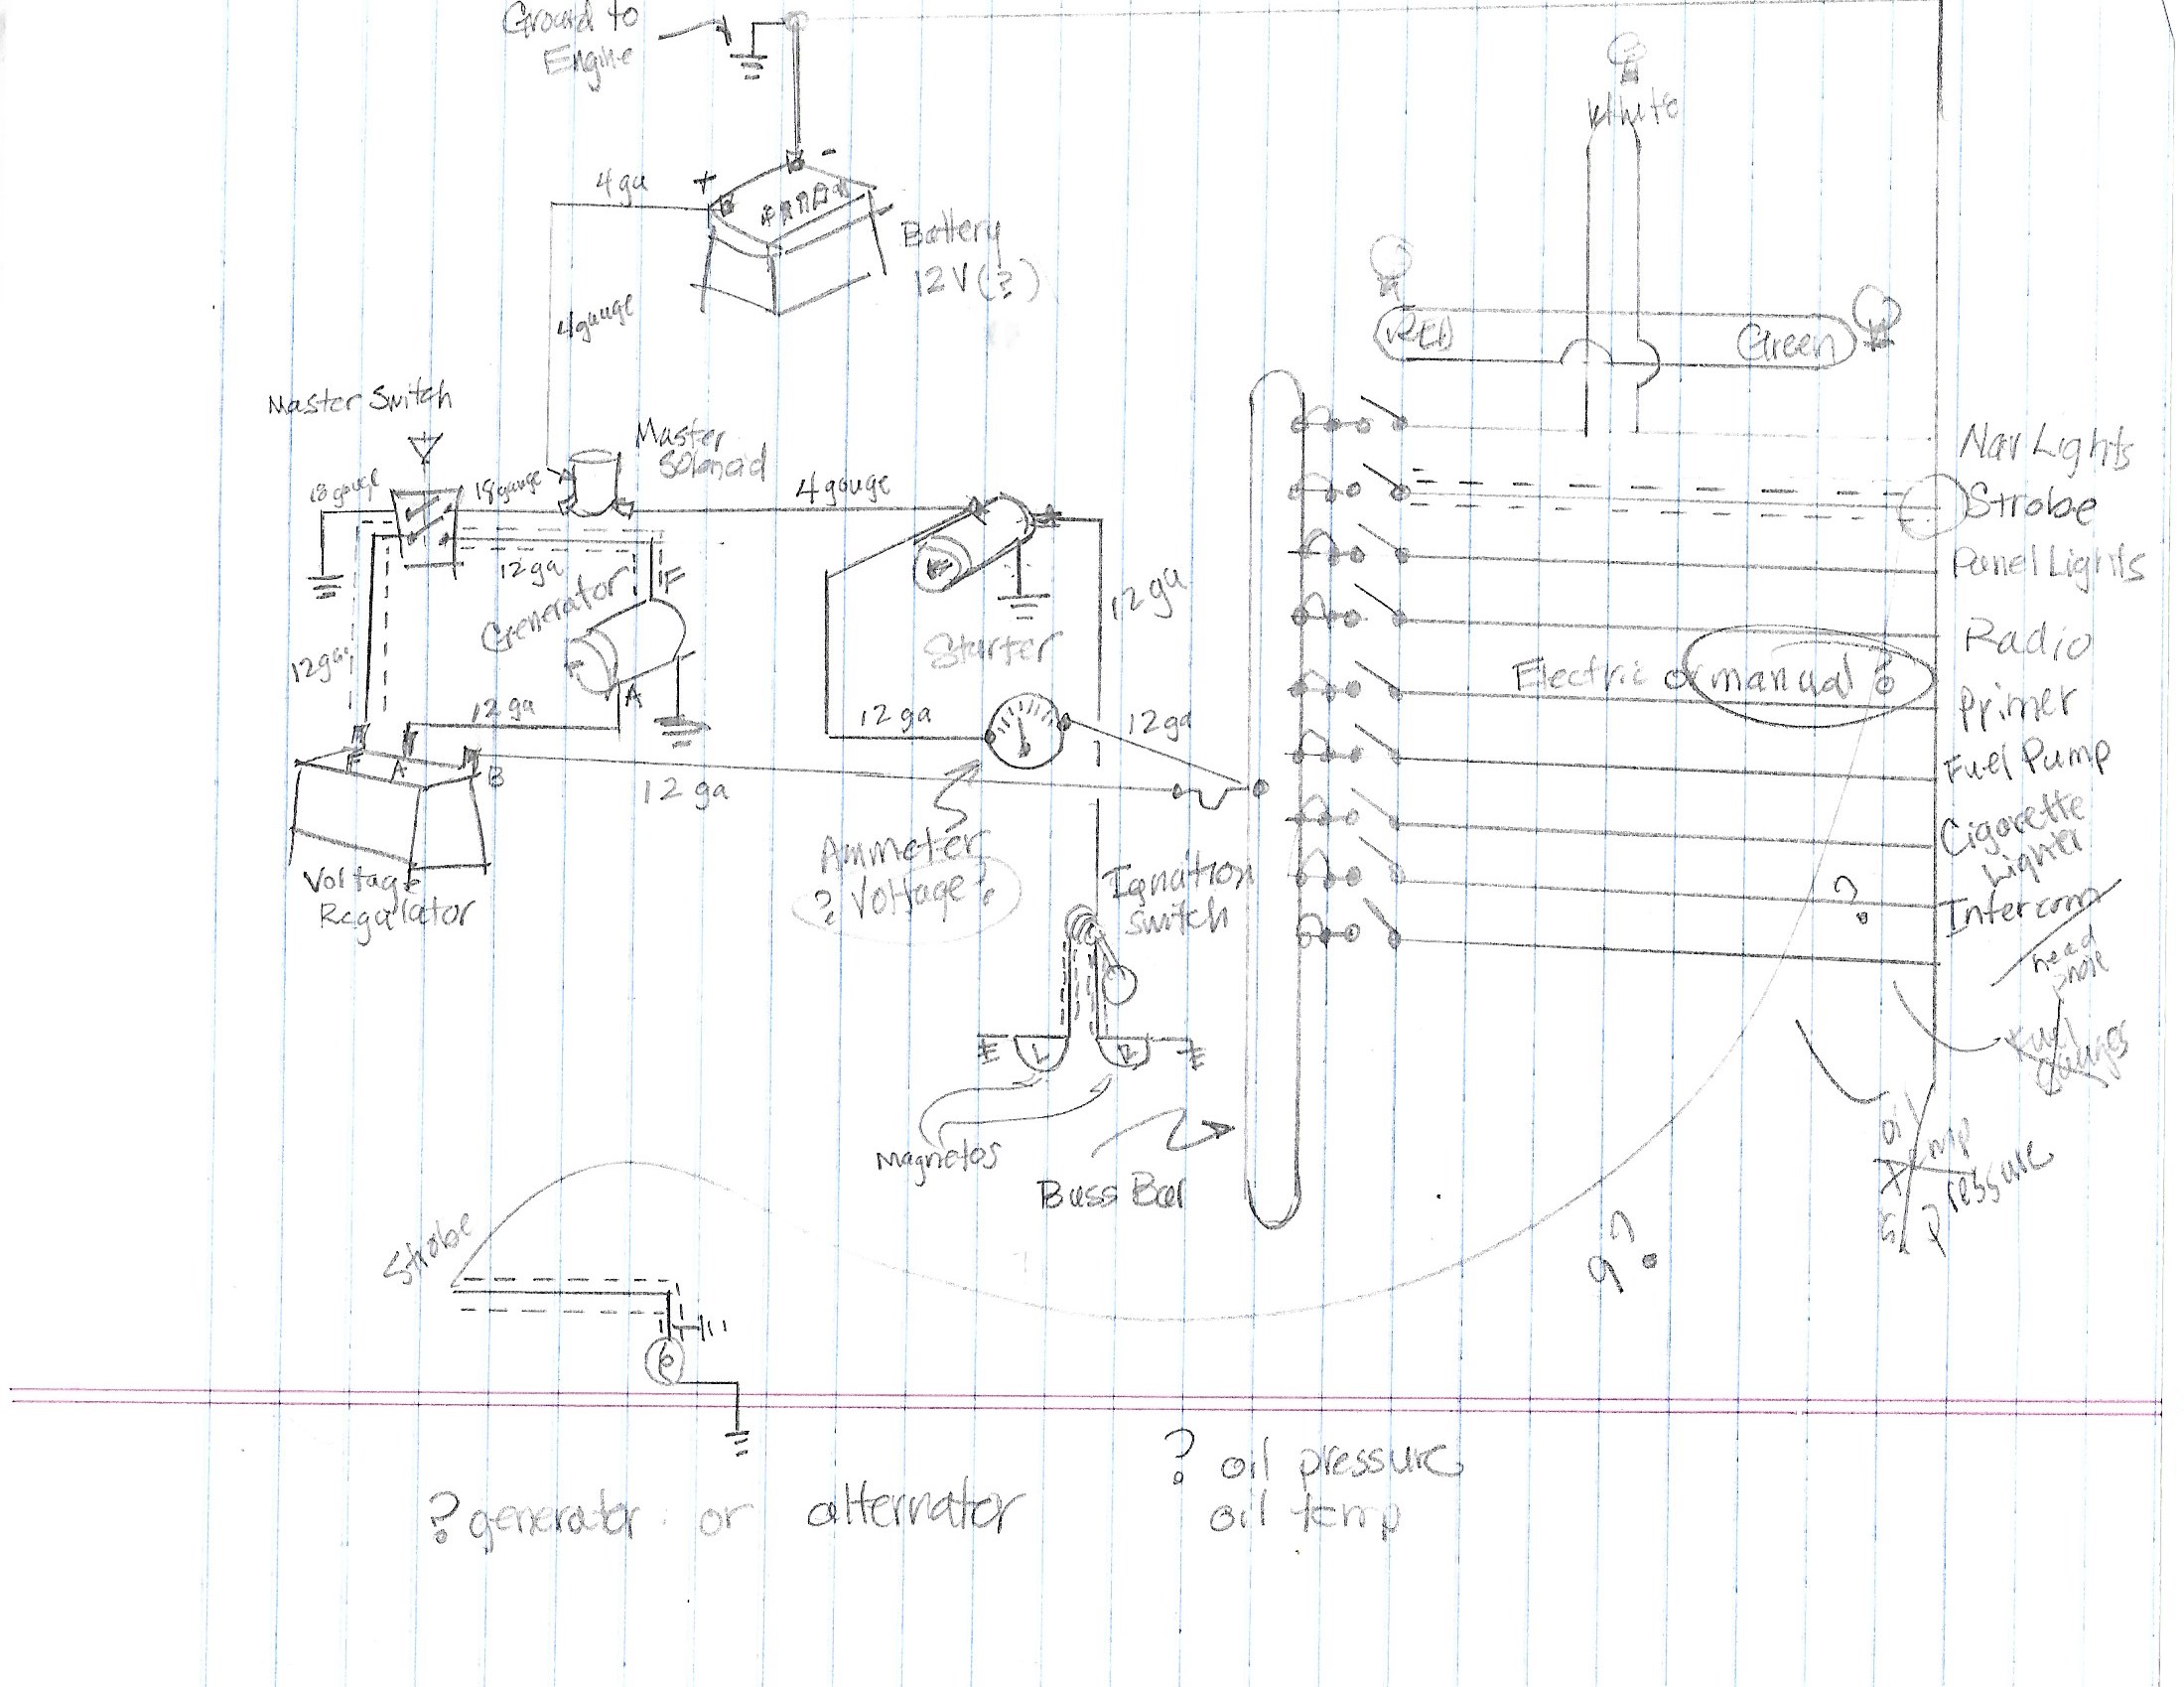 Ground to
Engine
4 ga
+
-
Battery
12V (?)
4 gauge
White
RED
Green
Master Switch
Master
Solonoid
18 gauge
18 gauge
4 gauge
12 ga
Generator
F
12 ga
A
12 ga
F A B
12 ga
Voltage
Regulator
Starter
12 ga
12 ga
12 ga
Ammeter
? Voltage ?
Ignation
switch
L R
Magnetos
Buss Bar
Nav Lights
Strobe
Panel Lights
Radio
Electric or manual ?
Primer
Fuel Pump
Cigarette
Lighter
?
Intercom
head
fuel
gauges
oil
pressure
??
Strobe
? generator or alternator
? oil pressure
oil temp